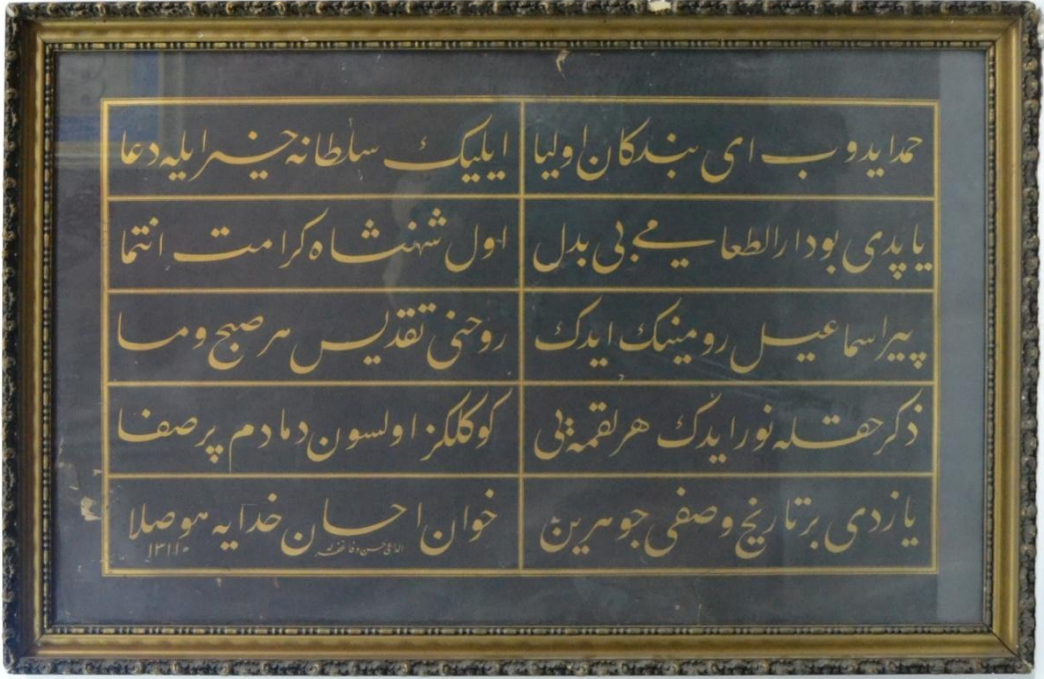 حمد ایدوب ای بندکان اولیا
ایلیک سلطانه خیر ایله دعا
یاپدی بو دار الطعامی بی بدل
اول شهنشاه کرامت انتما
پیر اسماعیل رومینک ایدک
روحنی تقدیس هر صبح و مسا
ذکر حقله نور ایدک هر لقمه یی
کوکلکز اولسون دمادم پر صفا
یازدی بر تاریخ وصفی جوهرین
خوان احسان خدایه هو صلا
۱۳۱۱